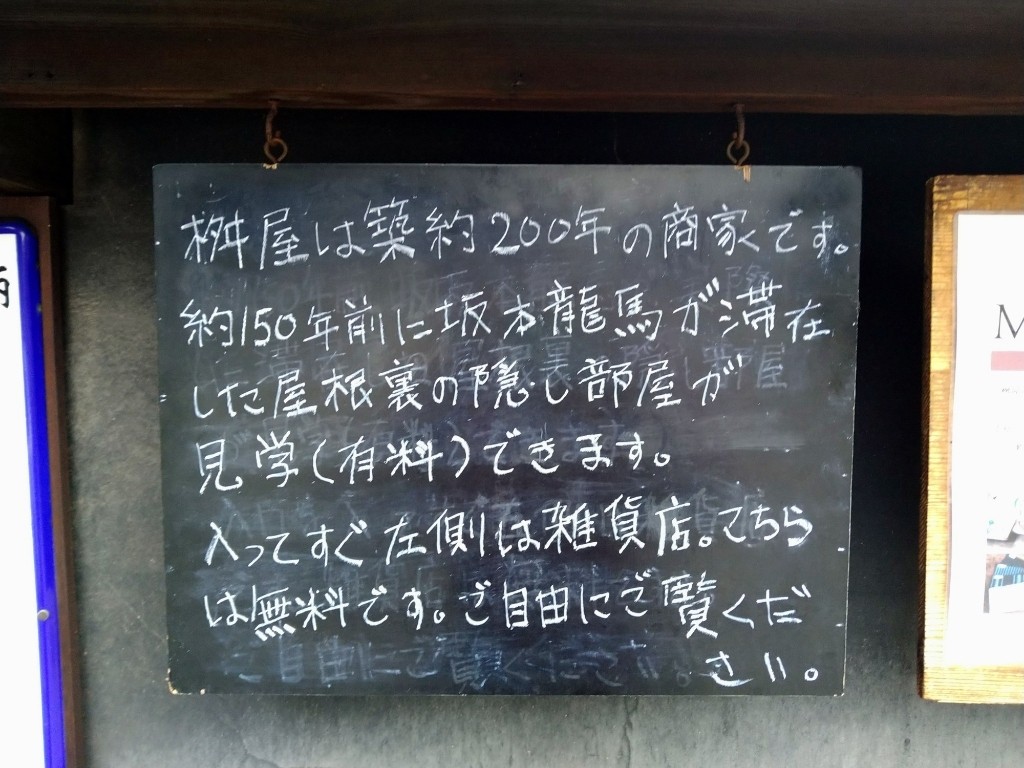 桝屋は築約200年の商家です。
約150年前に坂本龍馬が滞在
した屋根裏の隠し部屋が
見学(有料)できます。
入ってすぐ左側は雑貨店。こちら
は無料です。ご自由にご覧くだ
さい。
M